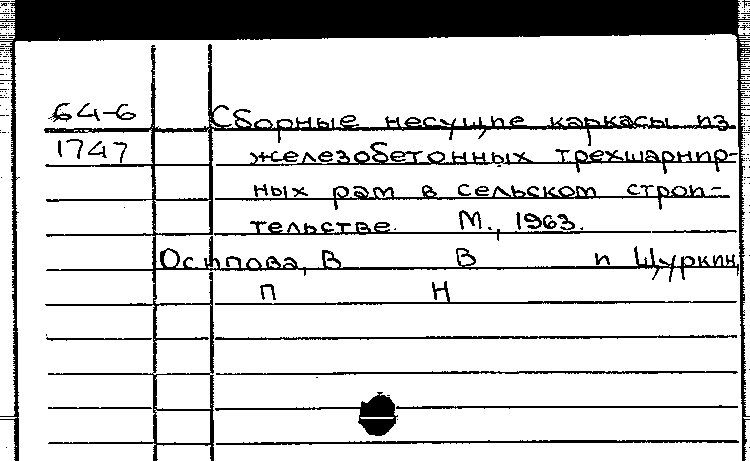 64-6 Сборные несущие каркасы из
1747 железобетонных трехшарнир-
ных рам в сельском строи-
тельстве. М., 1963.
Осипова, В В и Щуркин,
П Н